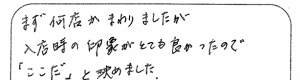 まず何店かまわりましたが
入店時の印象がとても良かったので
「ここだ」と決めました.